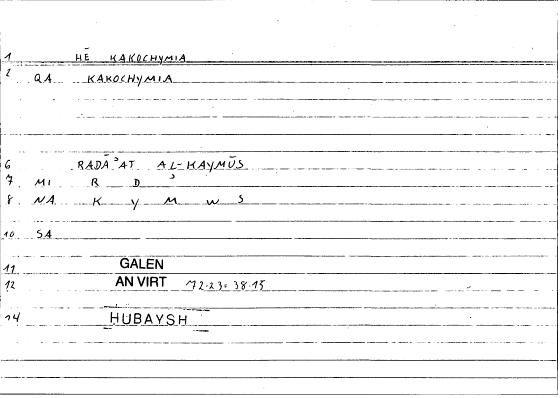 1 HĒ KAKOCHYMIA
2 QA KAKOCHYMIA
6 RADĀʾAT AL-KAYMŪS
7 MI R D ʾ
8 NA K Y M W S
10 SA
11 GALEN
12 AN VIRT 72.23 = 38.15
14 HUBAYSH